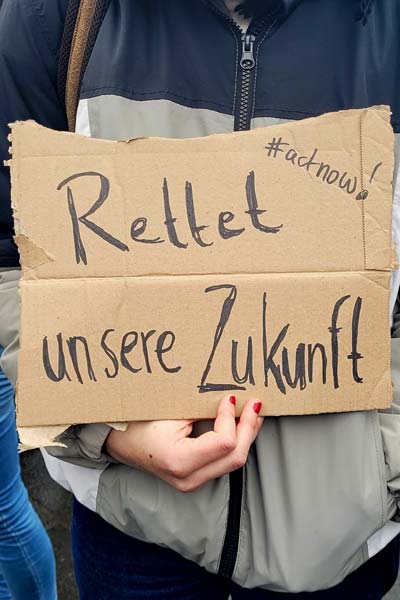 #actnow!
Rettet
unsere Zukunft